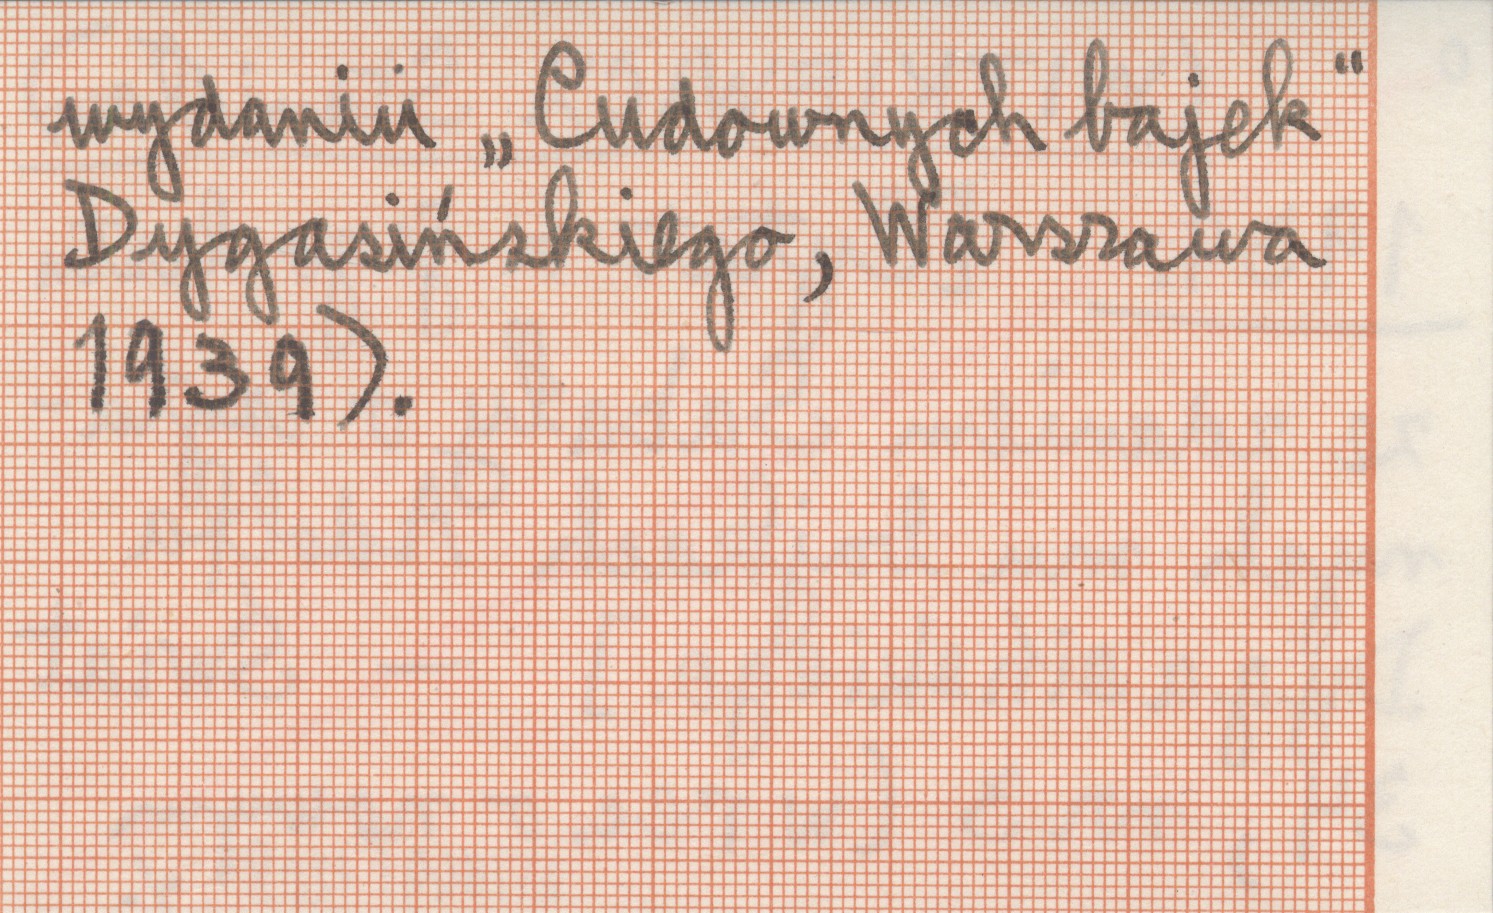 wydaniu „Cudownych bajek“
Dygasińskiego, Warszawa
1939).